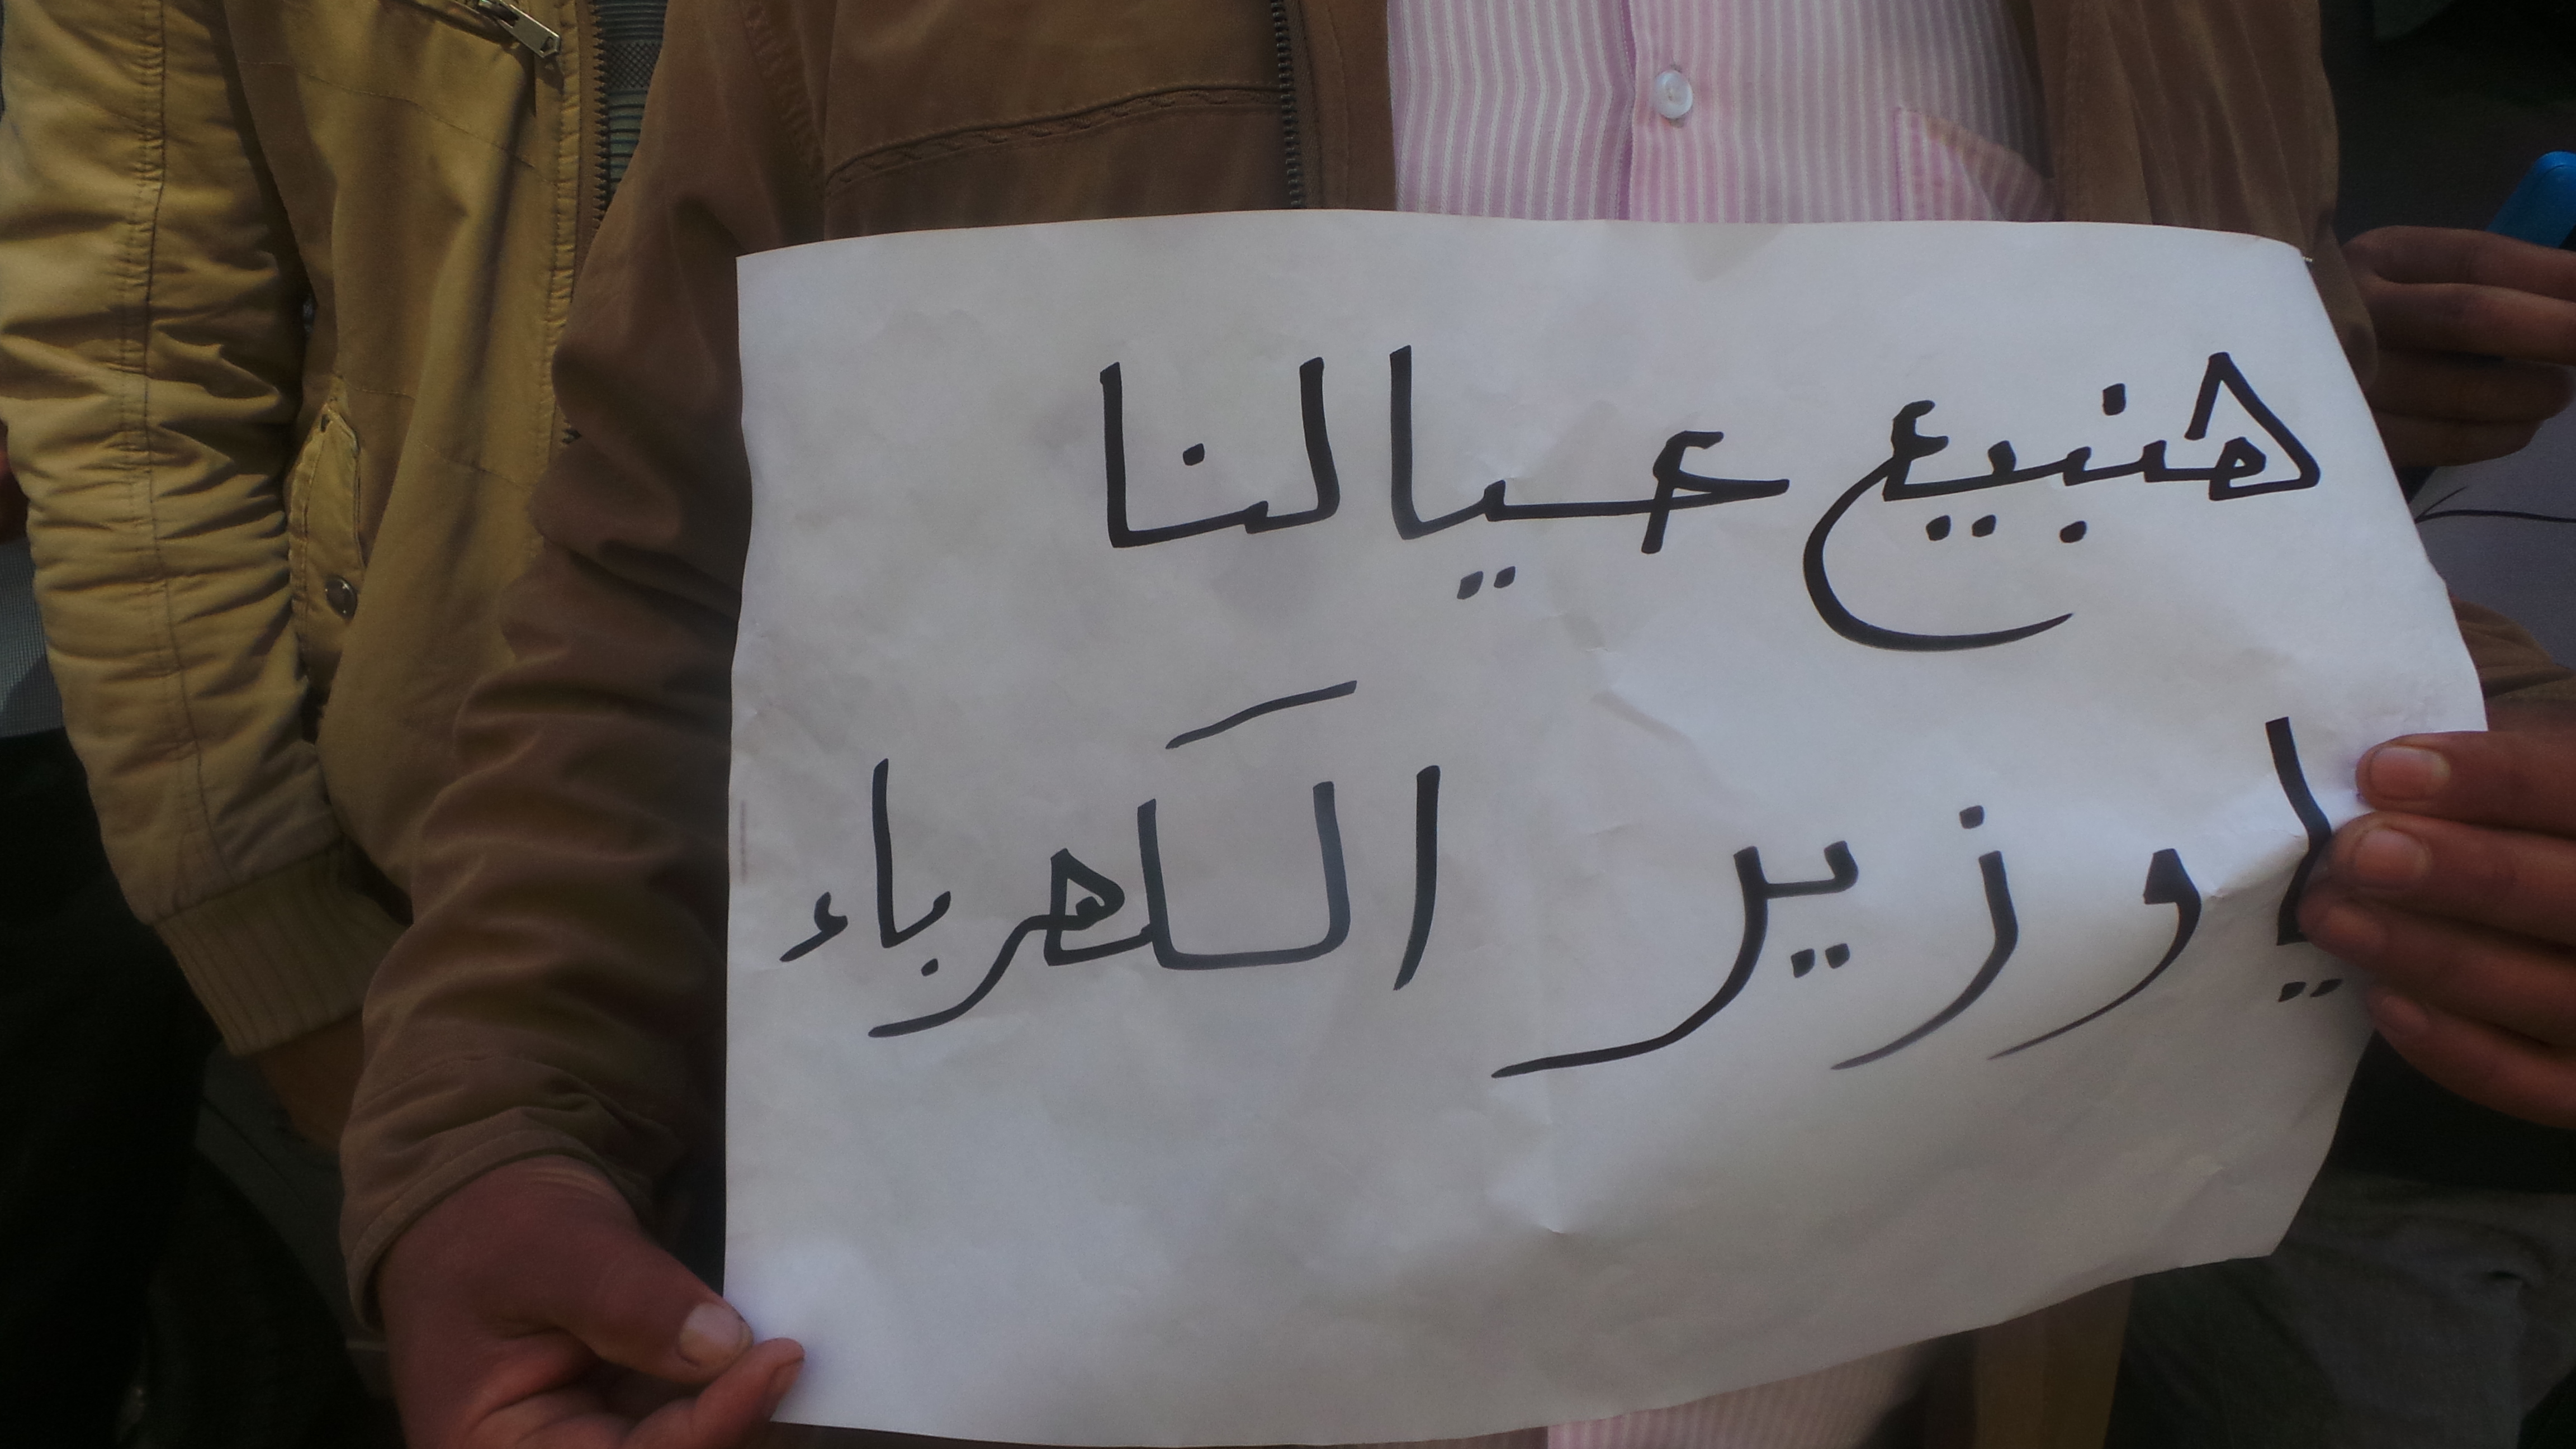 هنبيع عيالنا
يا وزير الكهرباء